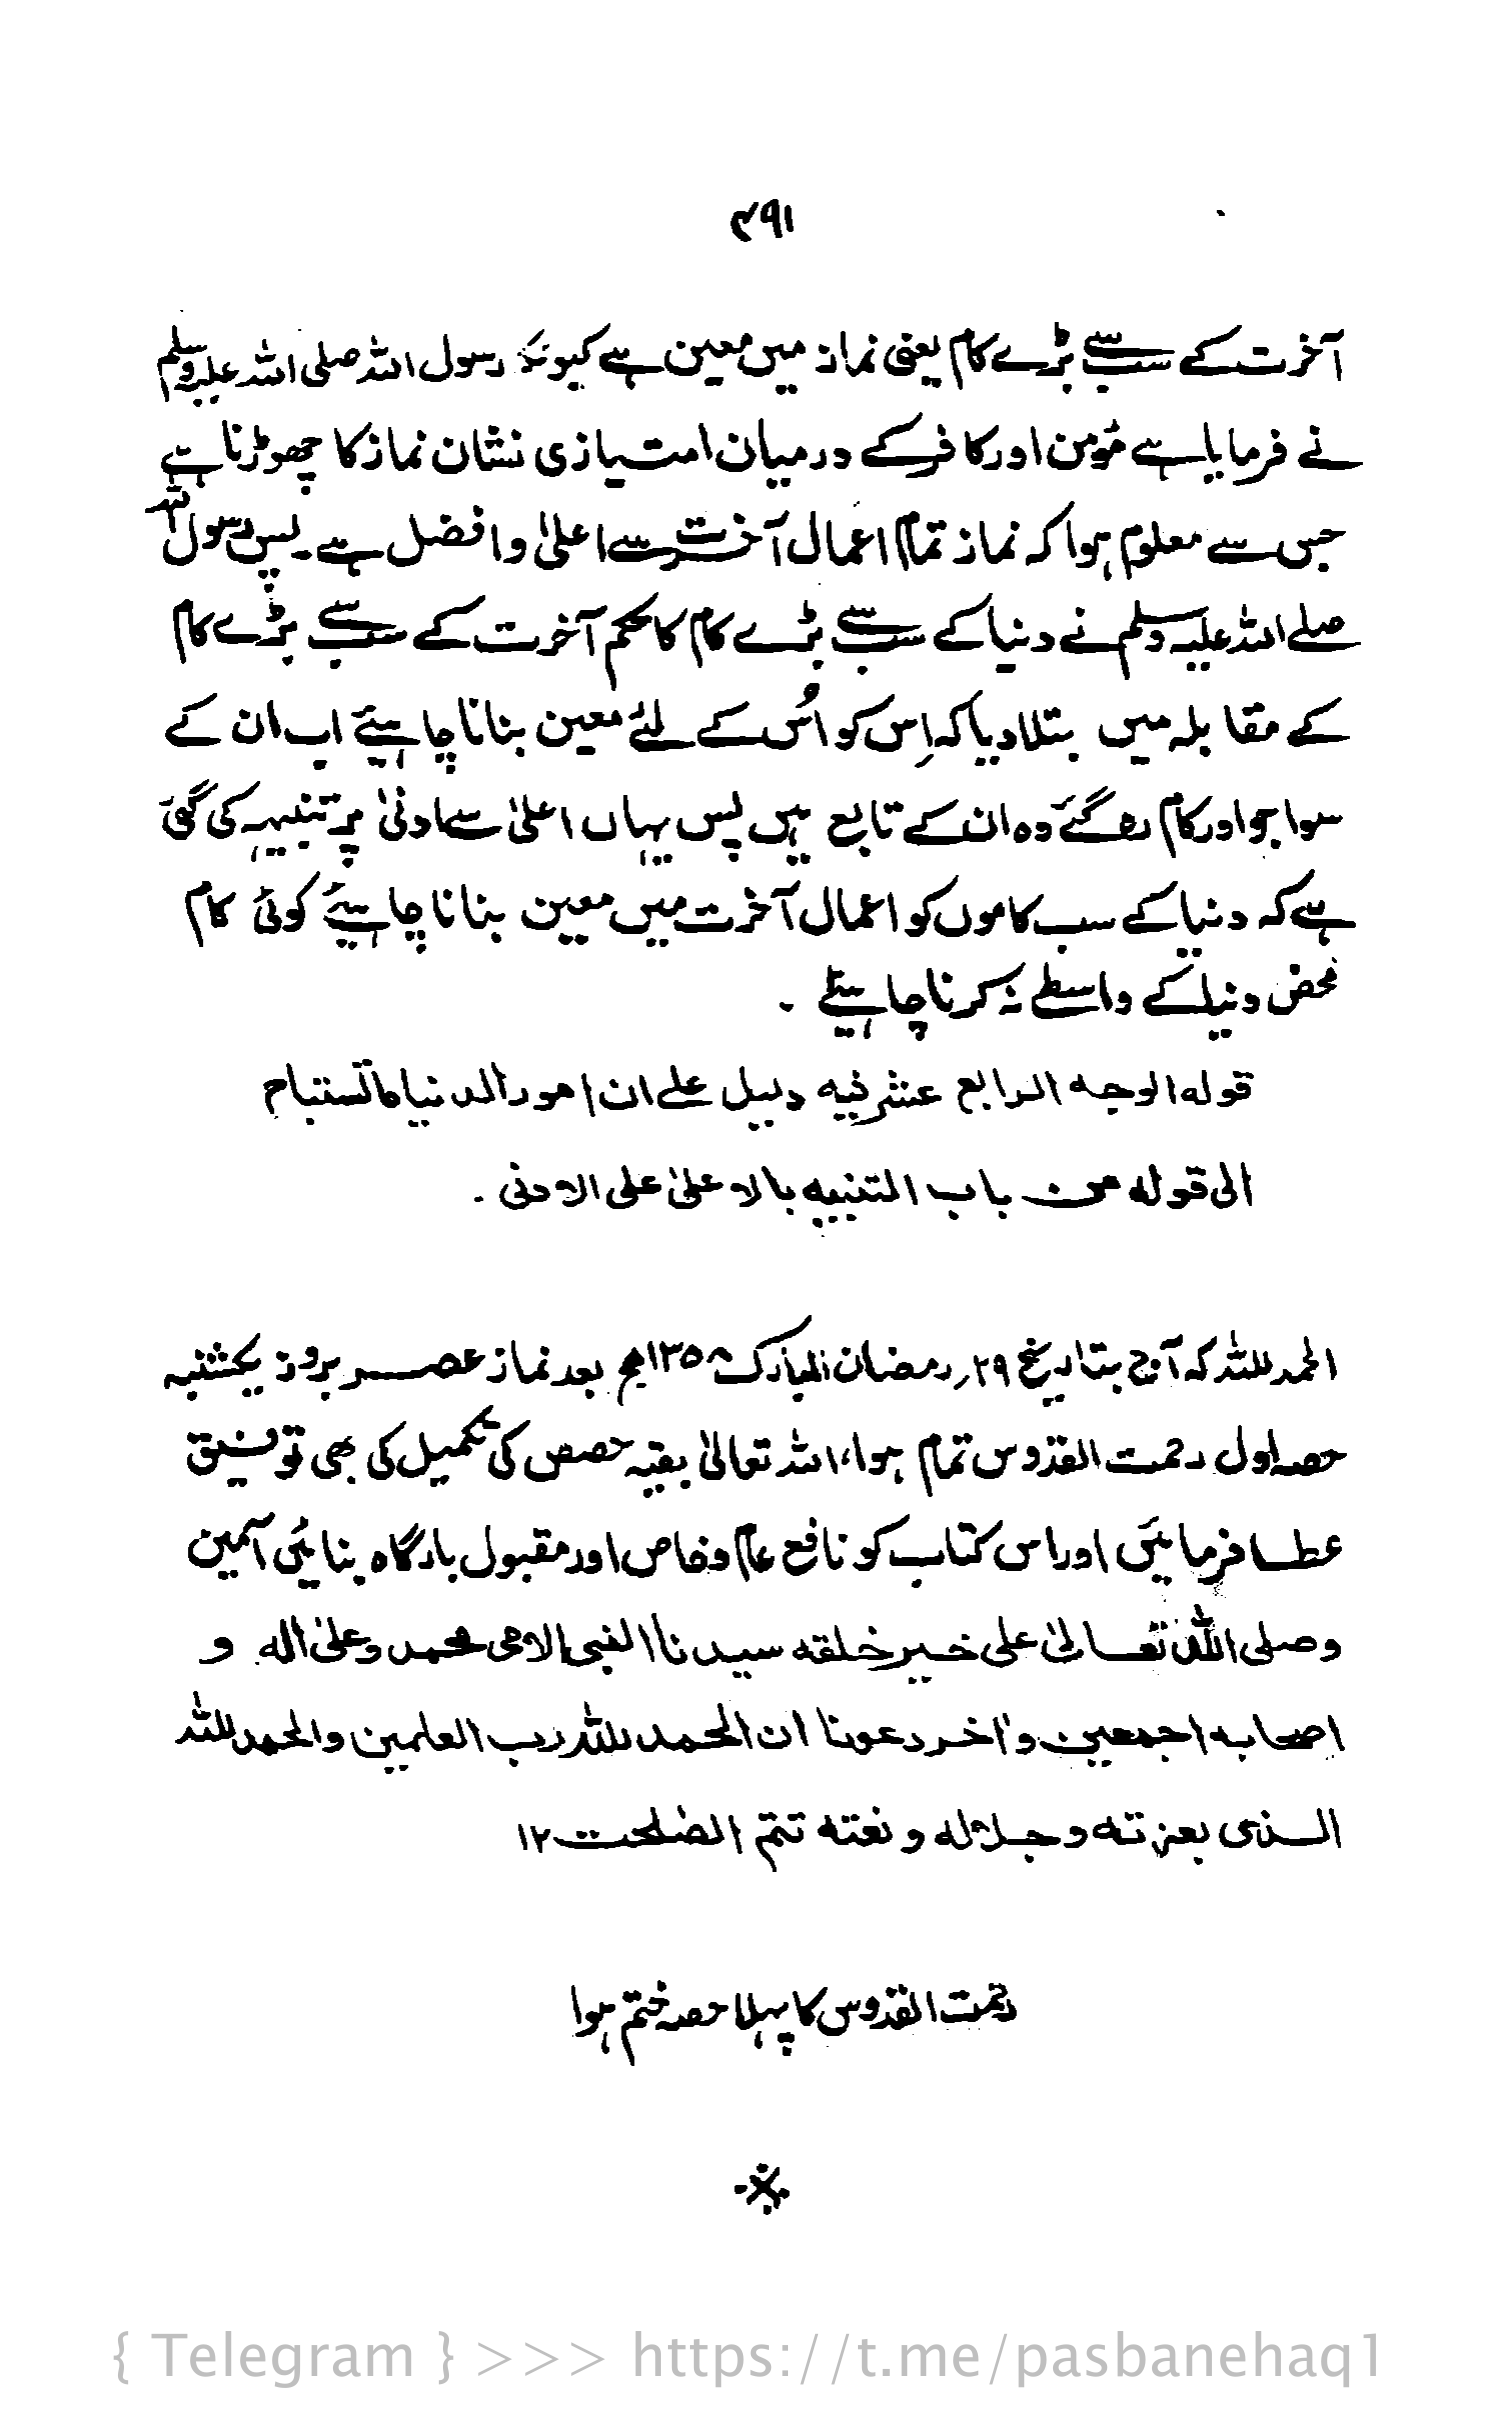 ۴۹۱
آخرت کے سب سے بڑے کام یعنی نماز میں معین ہے کیونکہ رسول اللہ صلی اللہ علیہ وسلم
نے فرمایا ہے مؤمن اور کافر کے درمیان امتیازی نشان نماز کا چھوڑنا ہے
جس سے معلوم ہوا کہ نماز تمام اعمال آخرت سے اعلیٰ وافضل ہے۔ پس رسول اللہ
صلے اللہ علیہ وسلم نے دنیا کے سب سے بڑے کام کا حکم آخرت کے سب سے بڑے کام
کے مقابلہ میں بتلادیا کہ اِس کو اُس کے لئے معین بنانا چاہیئے اب ان کے
سوا جو اور کام رہ گئے وہ ان کے تابع ہیں پس یہاں اعلیٰ سے ادنیٰ پر تنبیہہ کی گئی
ہے کہ دنیا کے سب کاموں کو اعمال آخرت میں معین بنانا چاہیئے کوئی کام
محض دنیا کے واسطے نہ کرنا چاہیئے ۔
قوله الوجه الرابع عشر فيه دليل على ان امور الدنيا ما تستباح
الى قوله من باب التنبيه بالاعلىٰ على الادنى ۔
الحمد للہ کہ آج بتاریخ ۲۹ رمضان المبارک ۱۳۵۸ھ بعد نماز عصر بروز یکشنبہ
حصہ اول رحمت القدوس تمام ہوا، اللہ تعالیٰ بقیہ حصص کی تکمیل کی بھی توفیق
عطا فرمائیں اور اس کتاب کو نافع عام وخاص اور مقبول بارگاہ بنائیں آمین
وصلى الله تعالىٰ على خير خلقه سيدنا النبى الامى محمد وعلىٰ اله و
اصحابه اجمعين واٰخر دعونا ان الحمد لله رب العلمين والحمد لله
الذى بعزته وجلاله و نعمته تتم الصٰلحت ۱۲
رحمت القدوس کا پہلا حصہ ختم ہوا
{ Telegram } >>> https://t.me/pasbanehaq1